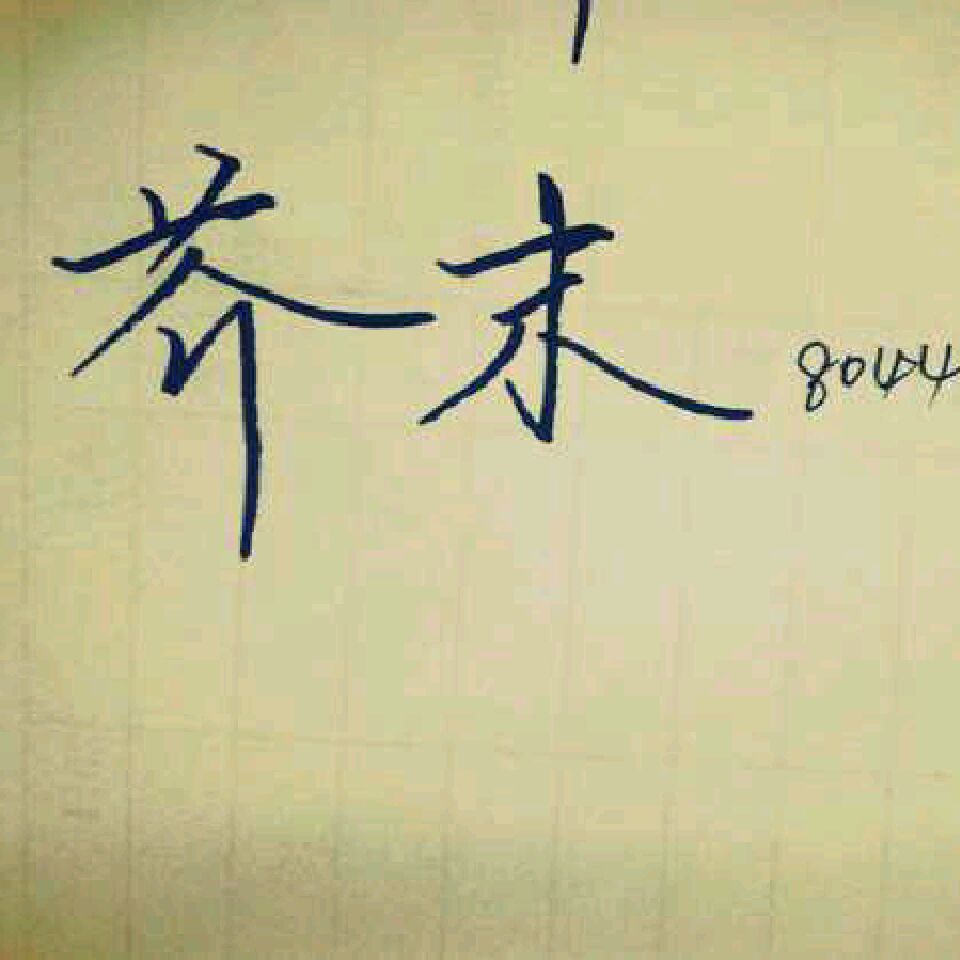 芥末 8044